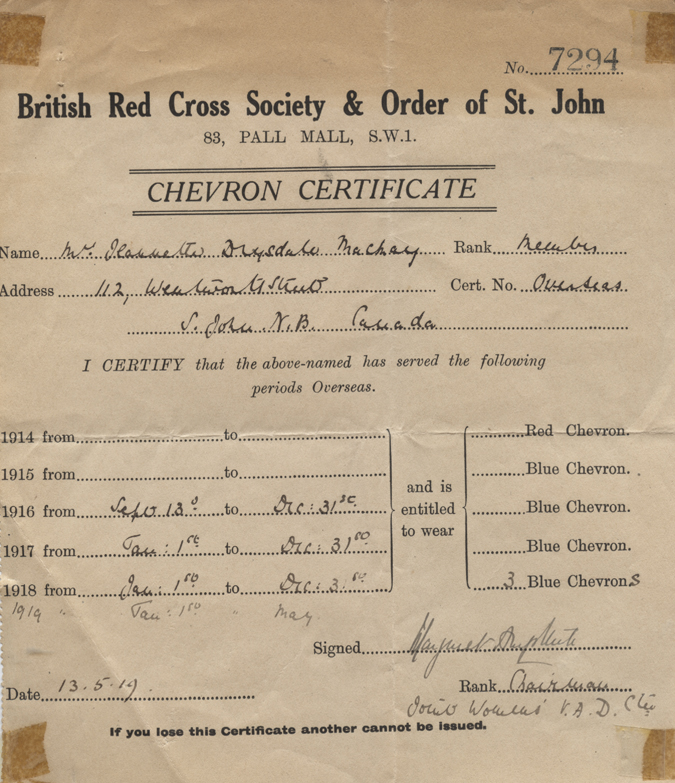 No. 7294
British Red Cross Society & Order of St. John
83, PALL MALL, S.W.1.
CHEVRON CERTIFICATE
Name Jeannette Drysdale Mackay Rank Member
Address 112, Wentworth Street Cert. No. Overseas
S. John N.B. Canada
I CERTIFY that the above-named has served the following
periods Overseas.
1914 from to Red Chevron.
1915 from to Blue Chevron.
and is
1916 from Sept 13 to Dec: 31st entitled Blue Chevron.
to wear
1917 from Jan: 1st to Dec: 31st Blue Chevron.
1918 from Jan: 1st to Dec: 3 3 Blue Chevrons
1919 " Jan: 1st " May
Signed Margaret
Date 13.5.19. Rank Chairman
Joint Womens' V.A.D. Ctee
If you lose this Certificate another cannot be issued.